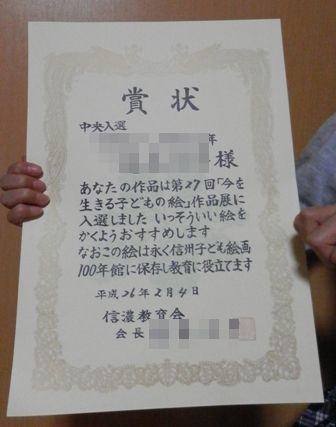 賞状
中央入選
年
様
あなたの作品は第27回「今を
生きる子どもの絵」作品展に
入選しました いっそういい絵を
かくようおすすめします
なおこの絵は永く信州子ども絵画
100年館に保存し教育に役立てます
平成26年2月4日
信濃教育会
会長